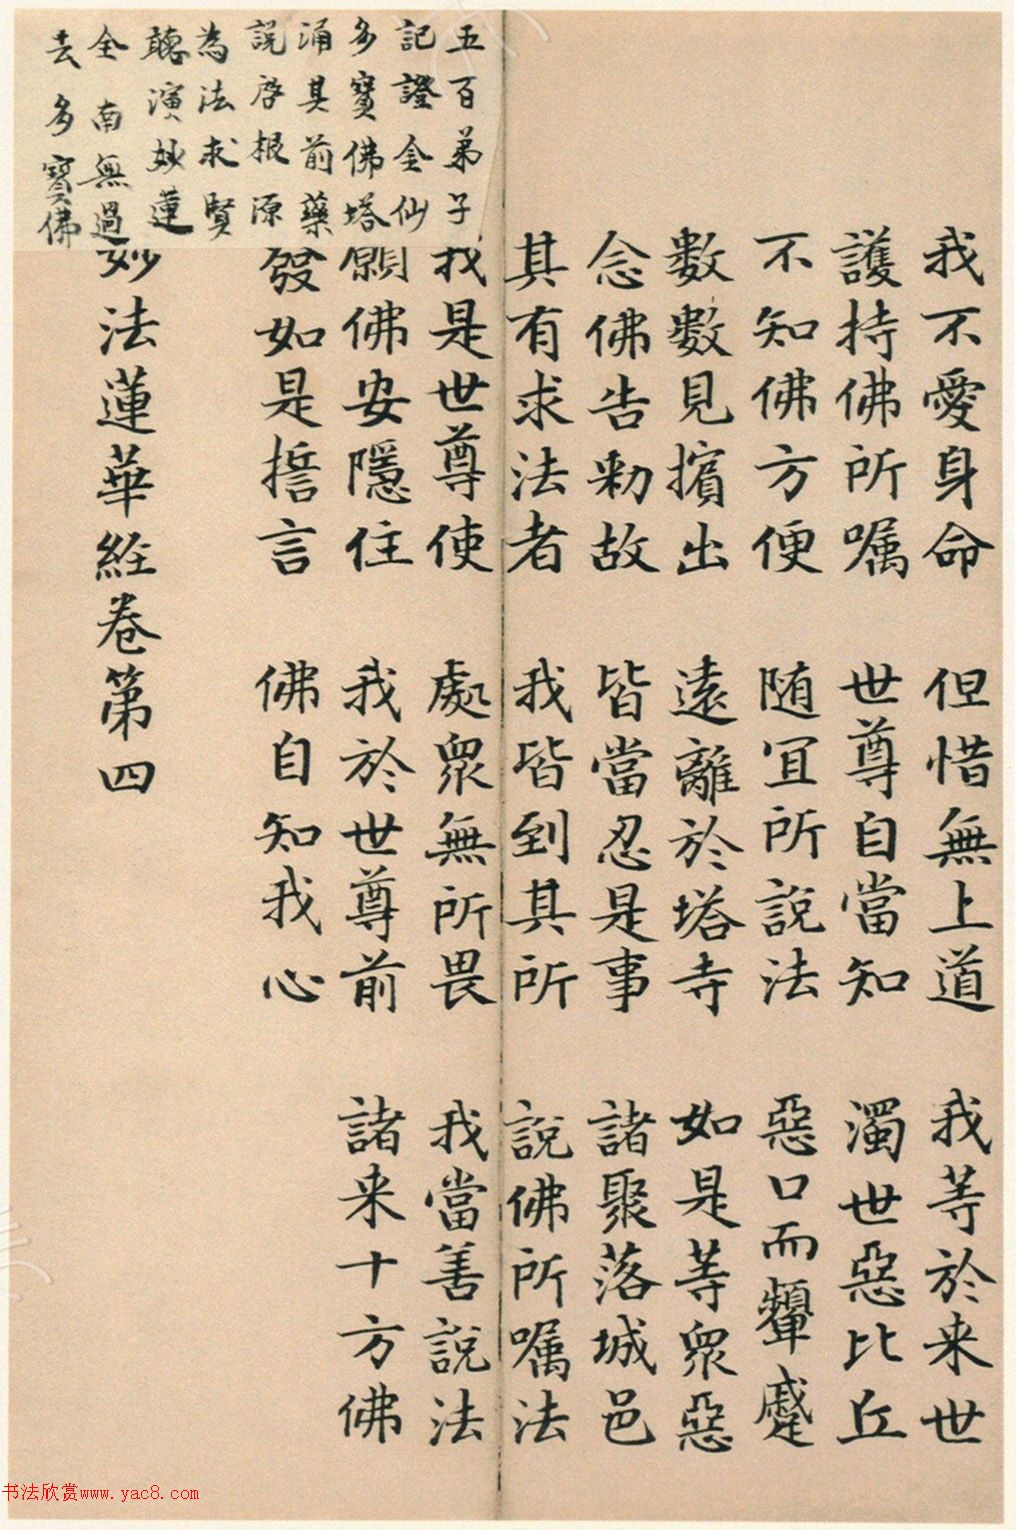 我不愛身命 但惜無上道 我等於来世
護持佛所嘱 世尊自當知 濁世惡比丘
不知佛方便 随宜所說法 惡口而顰蹙
數數見擯出 遠離於塔寺 如是等衆惡
念佛告勑故 皆當忍是事 諸聚落城邑
其有求法者 我皆到其所 說佛所嘱法
我是世尊使 處衆無所畏 我當善說法
願佛安隱住 我於世尊前 諸来十方佛
發如是誓言 佛自知我心
妙法蓮華經卷第四
五百弟子
記證金仙
多寶佛塔
涌其前藥
說啓根源
為法求賢
聽演妙蓮
全 南無過
去多寶佛
书法欣赏www.yac8.com